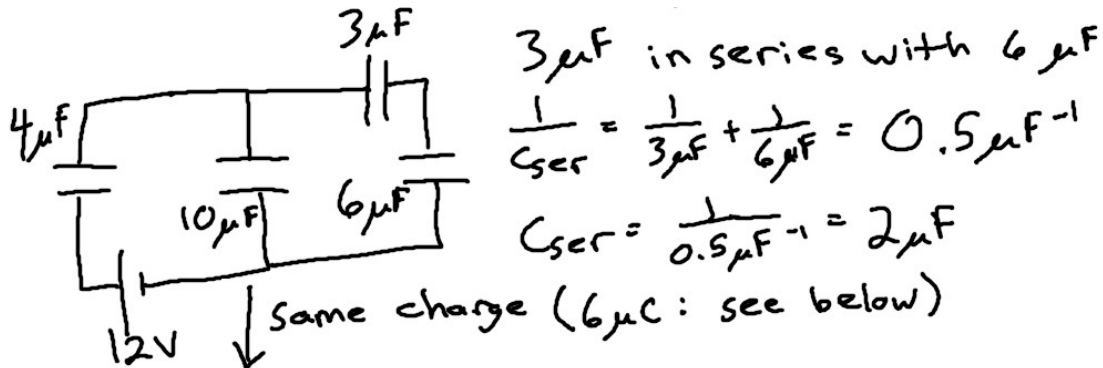 3μF
4μF
10μF
6μF
12V
3μF in series with 6 μF
1/Cser = 1/3μF + 1/6μF = 0.5μF⁻¹
Cser = 1/0.5μF⁻¹ = 2μF
same charge (6μC: see below)